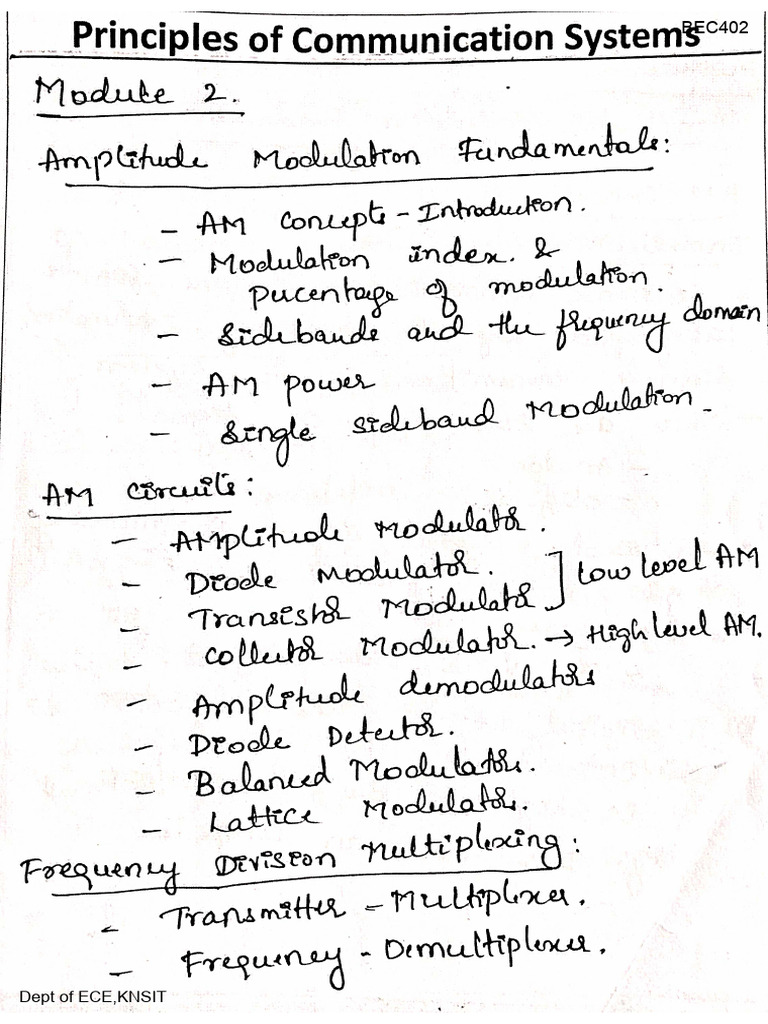 Principles of Communication Systems BEC402
Module 2.
Amplitude Modulation Fundamentals:
- AM Concepts - Introduction.
- Modulation index. &
Pucentage of modulation.
- Sidebands and the frequency domain
- AM power
- Single sideband Modulation -
AM Circuits:
- AMplitude Modulator.
- Diode Modulator. ] Low level AM
- Transistor Modulator
- Collector Modulator. → High level AM.
- Amplitude demodulators
- Diode Detector.
- Balanced Modulators.
- Lattice Modulators.
Frequency Division Multiplexing:
- Transmitter - Multiplexer.
- Frequency - Demultiplexer.
Dept of ECE,KNSIT